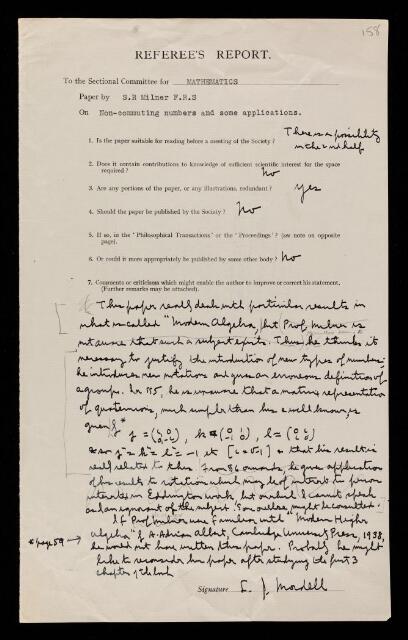 158
REFEREE'S REPORT.
To the Sectional Committee for MATHEMATICS
Paper by S.R Milner F.R.S
On Non-commuting numbers and some applications.
1. Is the paper suitable for reading before a meeting of the Society? There is a possibility
in the 2nd half
2. Does it contain contributions to knowledge of sufficient scientific interest for the space
required? No
3. Are any portions of the paper, or any illustrations, redundant? Yes
4. Should the paper be published by the Society? No
5. If so, in the 'Philosophical Transactions' or the 'Proceedings'? (see note on opposite
page).
6. Or could it more appropriately be published by some other body? No
7. Comments or criticisms which might enable the author to improve or correct his statement.
(Further remarks may be attached).
This paper really deals with particular results in
what is called "Modern Algebra, but Prof. Milner is
not aware that such a subject exists. Thus he thinks it
necessary to justify the introduction of new types of numbers;
he introduces new notations and gives an erroneous definition of
a group. In §5, he is unaware that a matrix representation
of quaternions, much simpler than his is well known, is
given by *
so j² = k² = l² = -1, etc [i = √-1] & that his result is
really related to this. From §6 onwards, he gives applications
of his results to rotations which may be of interest to persons
interested in Eddington's work, but on which I cannot speak
as I am ignorant of the subject. might be consulted.
If Prof Milner were familiar with "Modern Higher
Algebra" by A. Adrian Albert, Cambridge University Press, 1938,
* page 59 →
he would not have written this paper. Probably he might
like to reconsider his paper after studying the first 3
chapters of the book
Signature L. J. Mordell